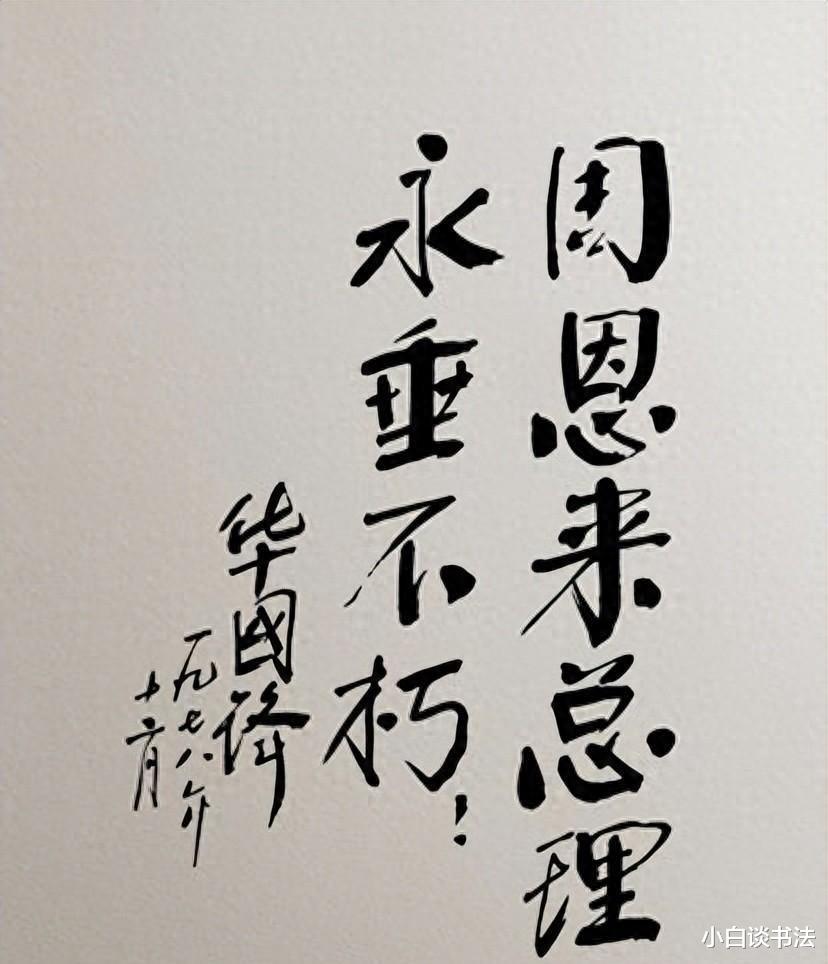 周恩来总理
永垂不朽！
华國锋
一九七八年
十二月
小白谈书法